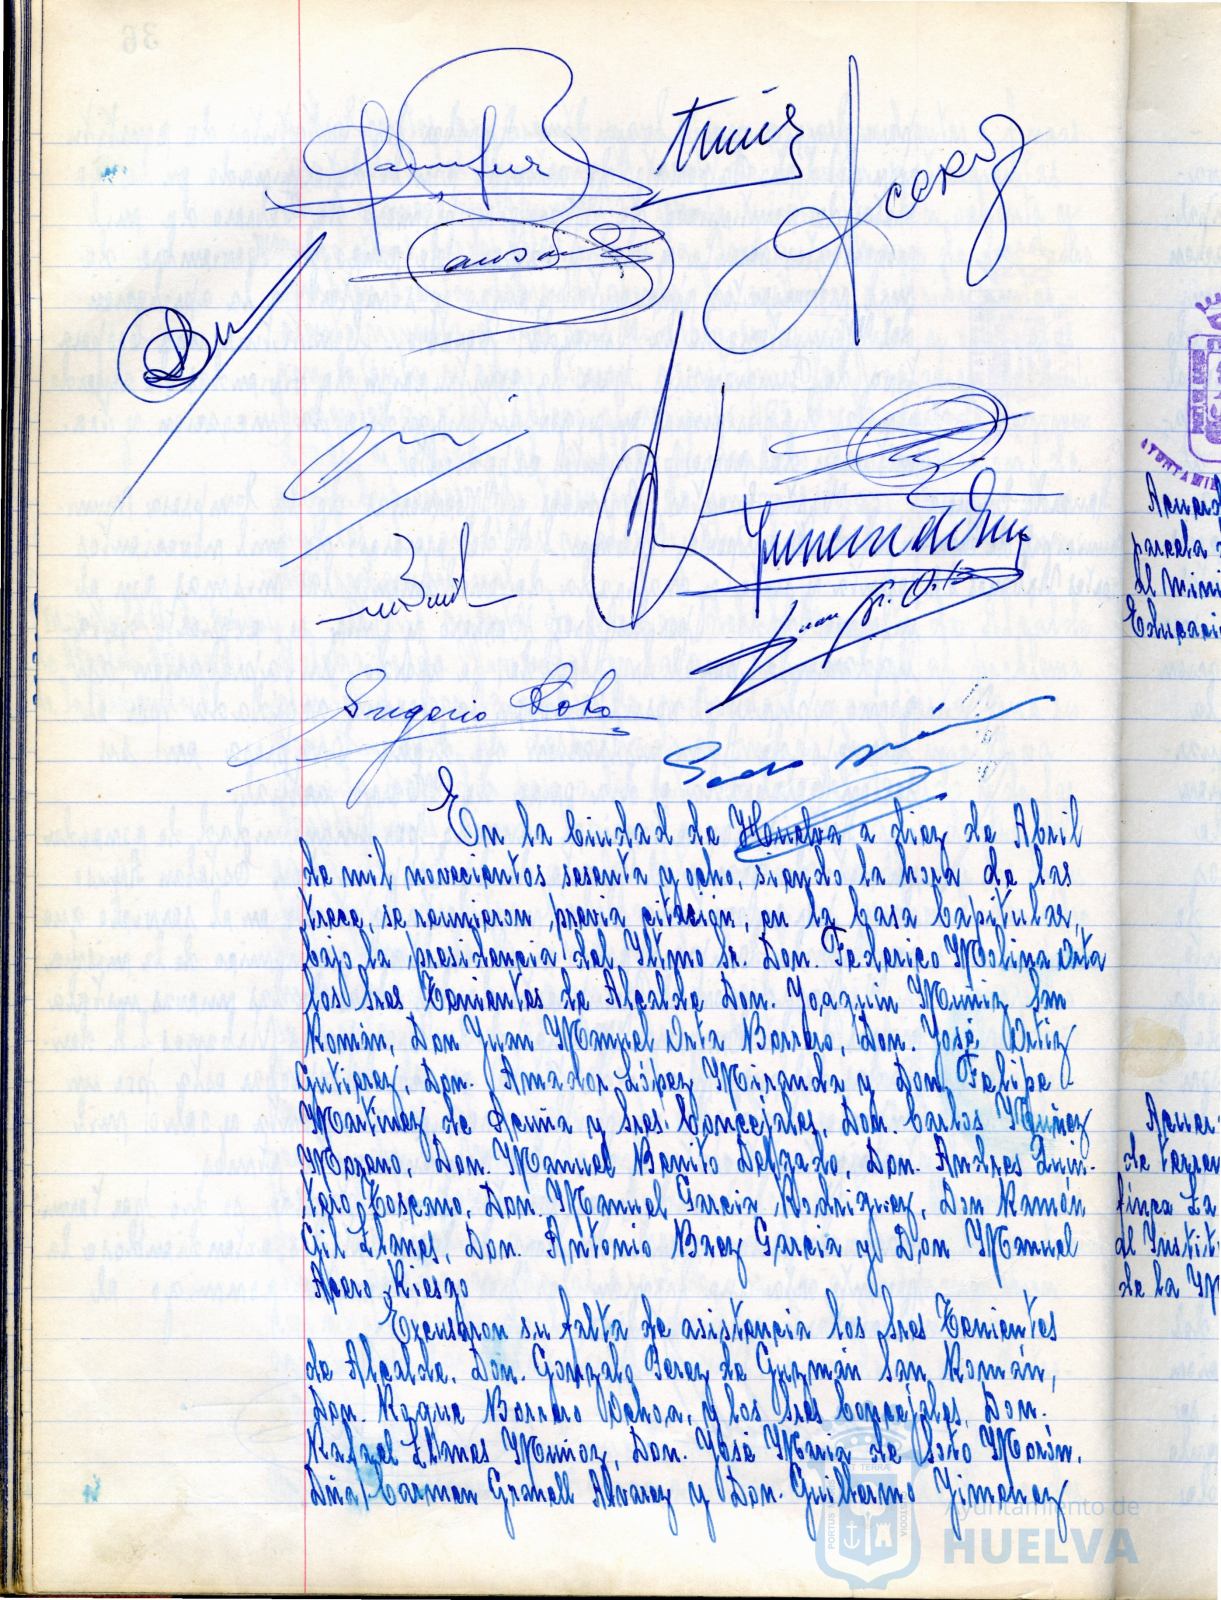 Eugenio Soto
En la Ciudad de Huelva a diez de Abril
de mil novecientos sesenta y ocho, siendo la hora de las
trece, se reunieron, previa citación, en la Casa Capitular,
bajo la presidencia del Iltmo Sr. Don. Federico Molina Orta
los Sres Tenientes de Alcalde Don. Joaquín Muñiz San
Román, Don Juan Manuel Orta Borrero, Don. José Ortiz
Gutierez, Don. Amador López Miranda y Don. Felipe
Martinez de Acuña y Sres. Concejales, Don. Carlos Muñoz
Moreno, Don. Manuel Benito Delgado, Don. Andres Quin-
tero Toscano, Don. Manuel Garcia Rodriguez, Don Ramón
Gil Llanes, Don. Antonio Baez Garcia y Don Manuel
Riesgo
Excusaron su falta de asistencia los Sres Tenientes
de Alcalde, Don. Gonzalo Perez de Guzmán San Román,
Don. Roque Borrero Ochoa, y los Sres Concejales, Don.
Rafael Llanes Muñoz, Don. José Maria de Soto Morón,
Dña. Carmen Granell Alvarez y Don. Guillermo Jimenez
Ayuntamiento de
HUELVA
parcela
al Mini
Educaci
de terren
finca La
al Instit
de la M